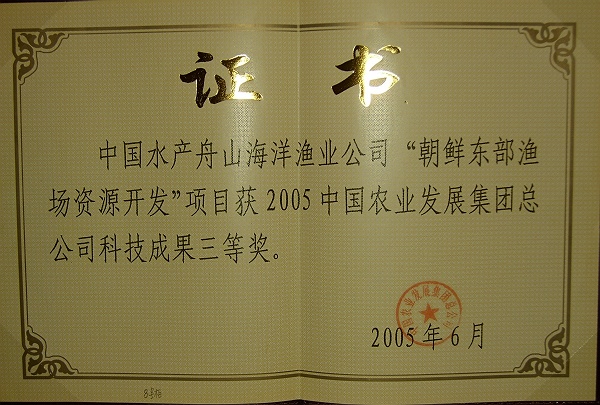 证书
中国水产舟山海洋渔业公司“朝鲜东部渔
场资源开发”项目获2005中国农业发展集团总
公司科技成果三等奖。
中国农业发展集团总公司
2005年6月